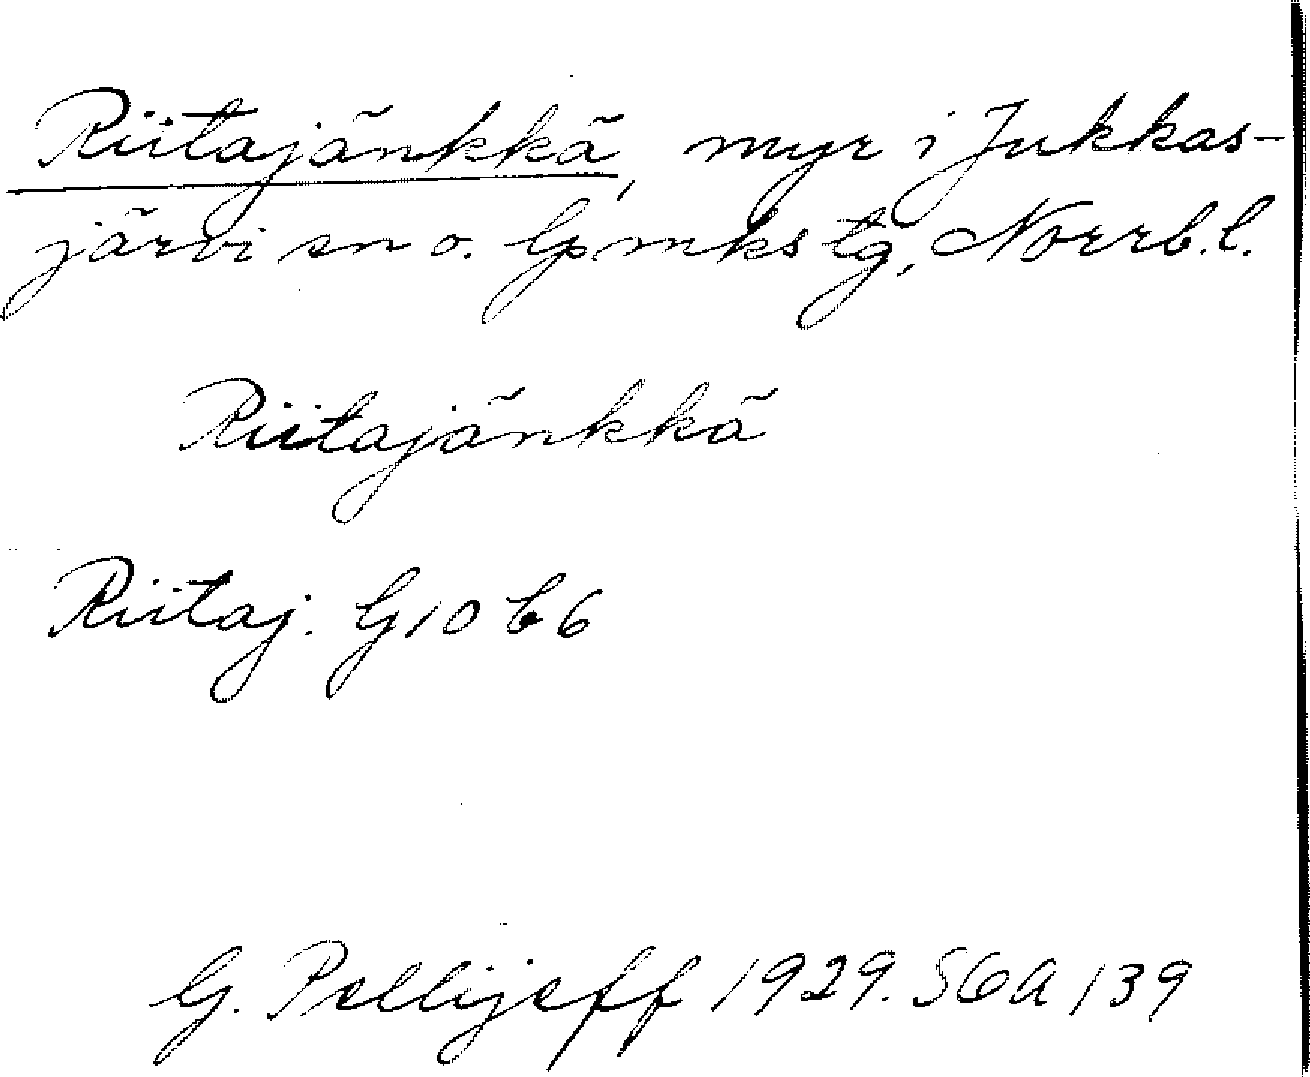 Riitajänkkä, myr i Jukkas-
järvi sn o. lpmks tg, Norrb. l.
Riitajänkkä
Riitaj. G 10 b 6
G. Pellijeff 1929. SGA 139